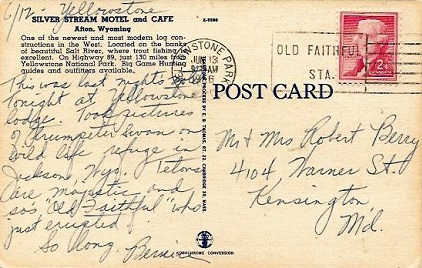 6/12 - Yellowstone
SILVER STREAM MOTEL and CAFE
Afton, Wyoming
One of the newest and most modern log con-
structions in the West. Located on the banks
of beautiful Salt River, where trout fishing is
excellent. On Highway 89, just 130 miles from
Yellowstone National Park. Big Game Hunting
guides and outfitters available.
This was last nights motel
Tonight at Yellowstone
lodge. Took pictures
of trumpeter swans on
wild life refuge in
Jackson, Wyo. Tetons
are majestic and
so's "Old Faithful" who
just erupted
So long. Bernice
POST CARD
JUN 13
OLD FAITHFUL
STA.
2¢
Mr & Mrs Robert Berry
4104 Warner St.
Kensington,
Md.